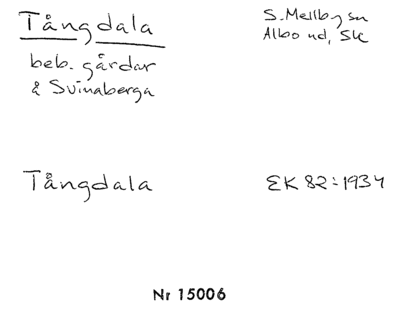 Tångdala
S. Mellby sn
Albo hd, Sk
beb. gårdar
å Svinaberga
Tångdala
EK 82:1934
Nr 15006